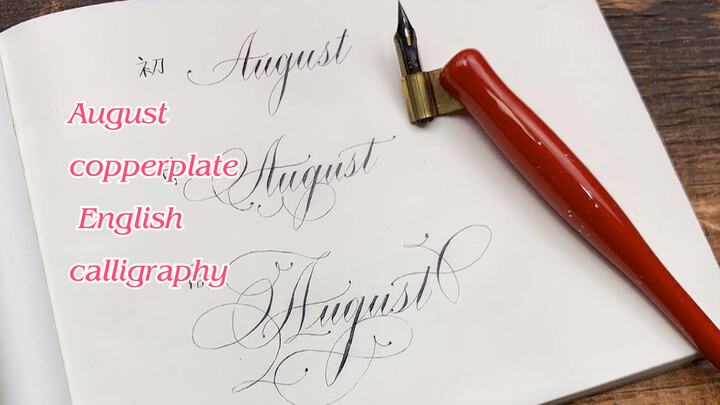 初 August
August
copperplate
August
English
calligraphy
August